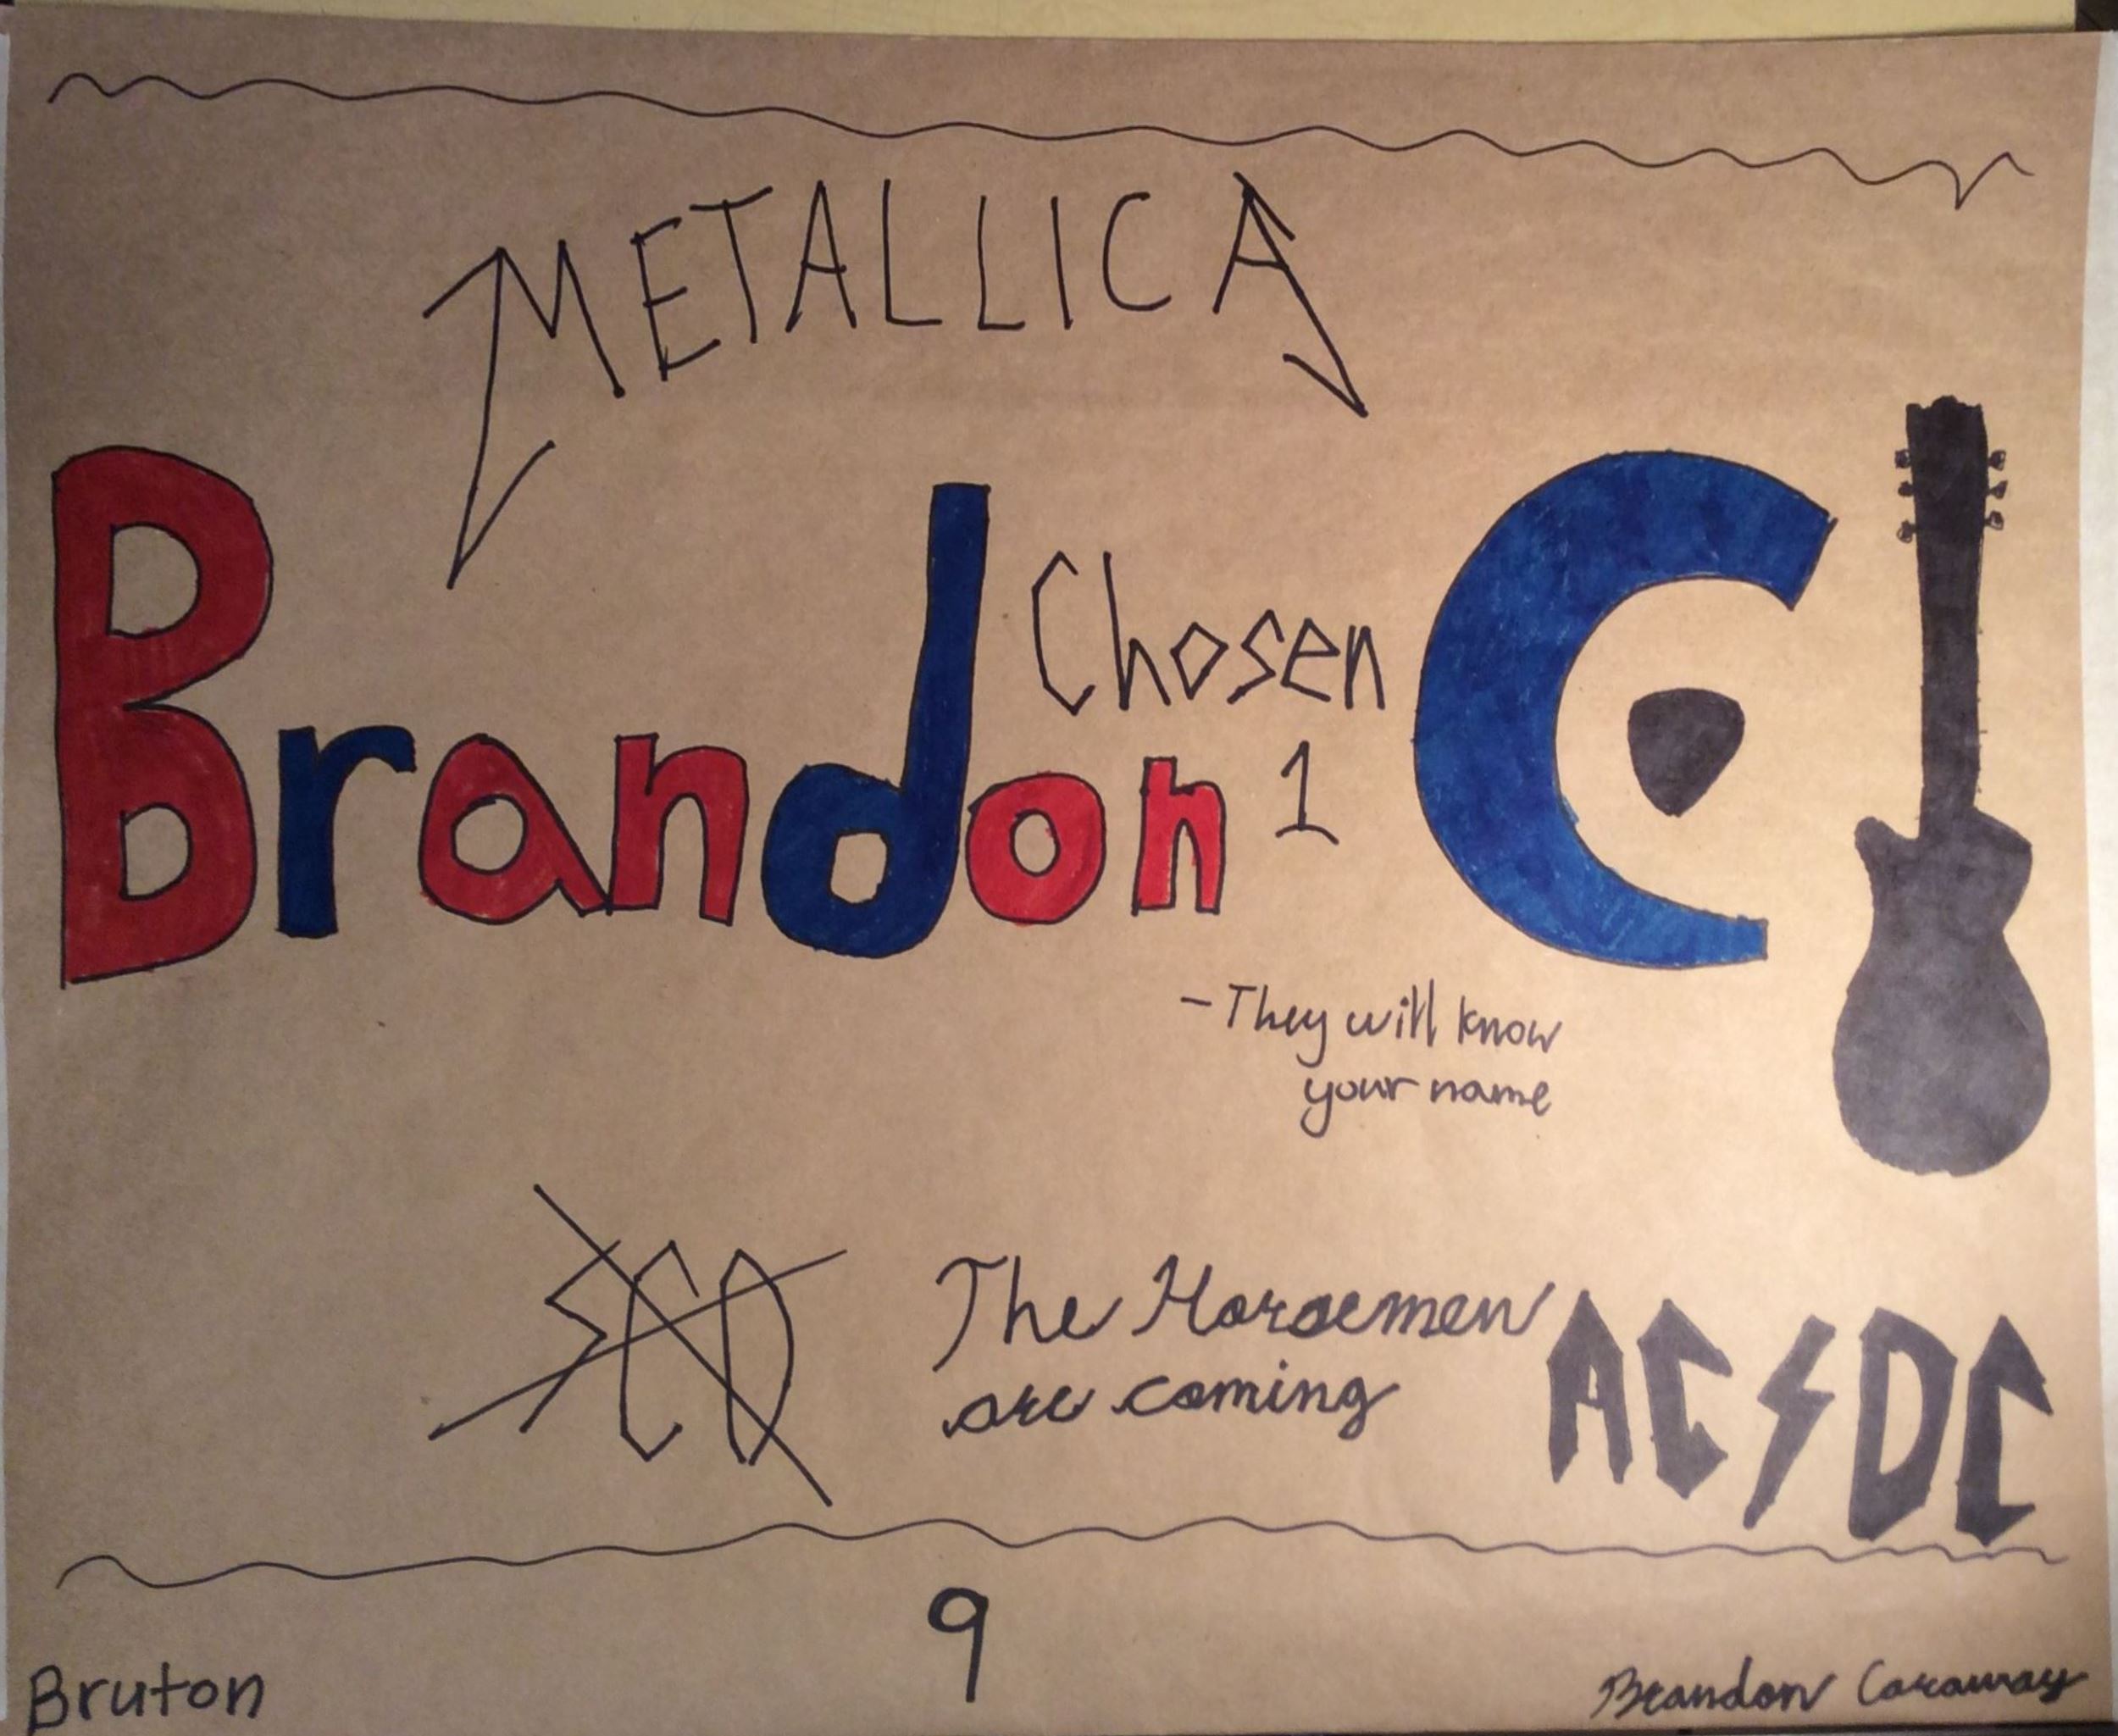 METALLICA
Brandon C
Chosen
1
- They will know
your name
The Horsemen
are coming
AC/DC
9
Bruton
Brandon Caraway